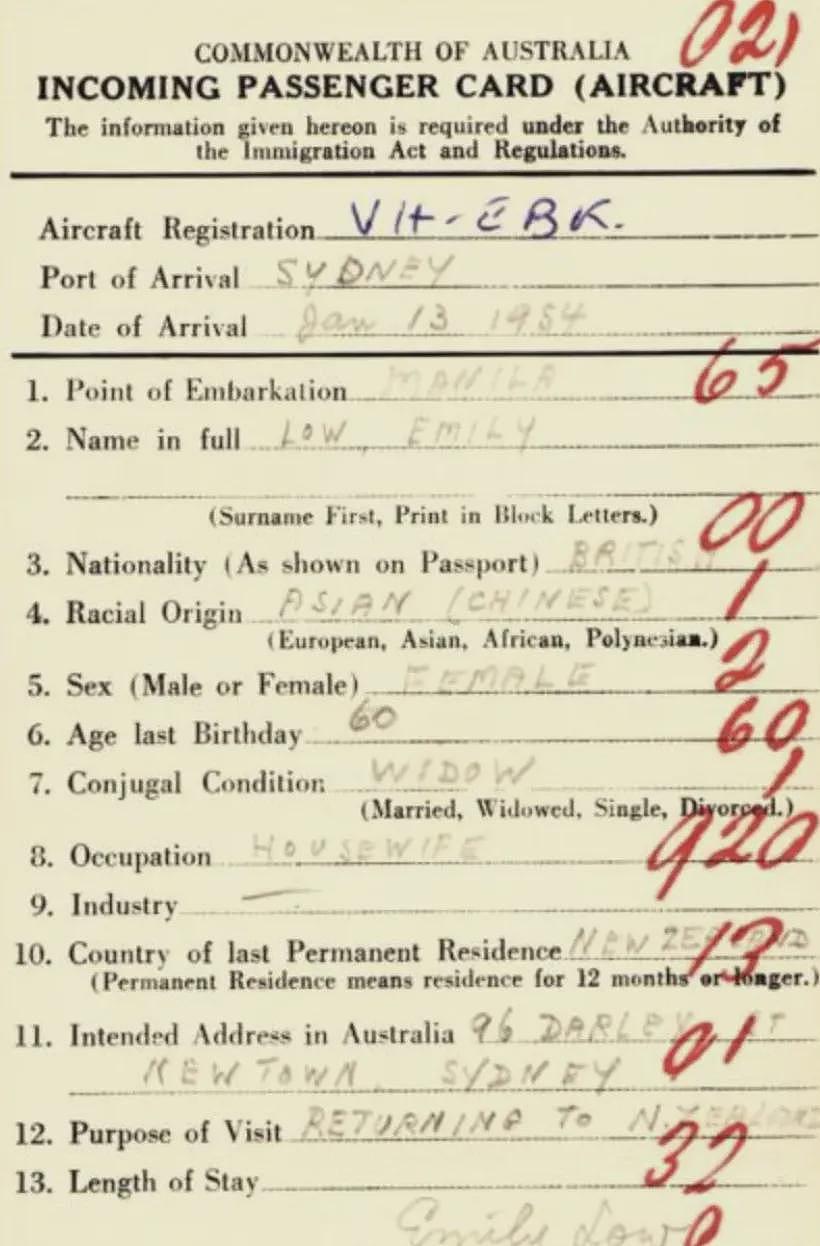 021
COMMONWEALTH OF AUSTRALIA
INCOMING PASSENGER CARD (AIRCRAFT)
The information given hereon is required under the Authority of
the Immigration Act and Regulations.
Aircraft Registration VH-EBK.
Port of Arrival SYDNEY
Date of Arrival Jan 13 1954
1. Point of Embarkation MANILA 65
2. Name in full LOW, EMILY
(Surname First, Print in Block Letters.)
3. Nationality (As shown on Passport) BRITISH 00
4. Racial Origin ASIAN (CHINESE) 1
(European, Asian, African, Polynesian.)
5. Sex (Male or Female) FEMALE 2
6. Age last Birthday 60 60
7. Conjugal Condition WIDOW 1
(Married, Widowed, Single, Divorced.)
8. Occupation HOUSEWIFE 920
9. Industry —
10. Country of last Permanent Residence NEW ZEALAND 13
(Permanent Residence means residence for 12 months or longer.)
11. Intended Address in Australia 96 DARLEY ST 01
NEWTOWN, SYDNEY
12. Purpose of Visit RETURNING TO N. ZEALAND
13. Length of Stay 32
Emily Low